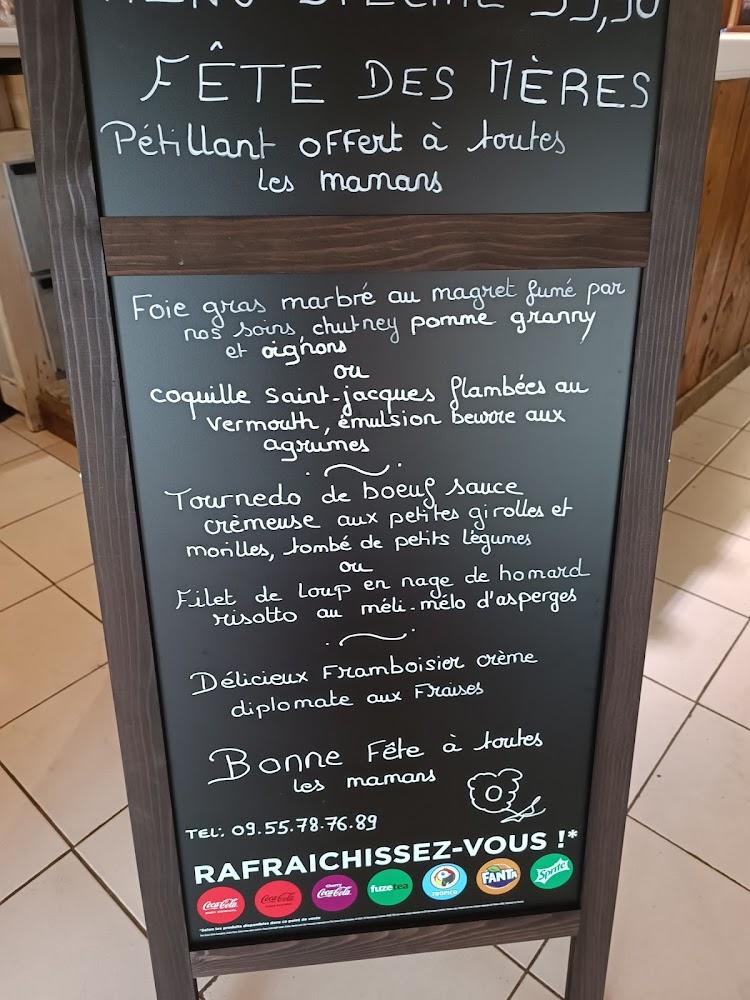 MENU SPÉCIAL 39,90
FÊTE DES MÈRES
Pétillant offert à toutes
les mamans
Foie gras marbré au magret fumé par
nos soins, chutney pomme granny
et oignons
ou
coquille Saint-jacques flambées au
vermouth, émulsion beurre aux
agrumes
Tournedo de boeuf sauce
crèmeuse aux petites girolles et
morilles, tombé de petits légumes
ou
Filet de loup en nage de homard
risotto au méli-mélo d'asperges
Délicieux Framboisier crème
diplomate aux Fraises
Bonne Fête à toutes
les mamans
TEL: 09.55.78.76.89
RAFRAICHISSEZ-VOUS !*
Coca-Cola Coca-Cola Cherry Coca-Cola fuzetea TROPICO FANTA Sprite
*Selon les produits disponibles dans ce point de vente